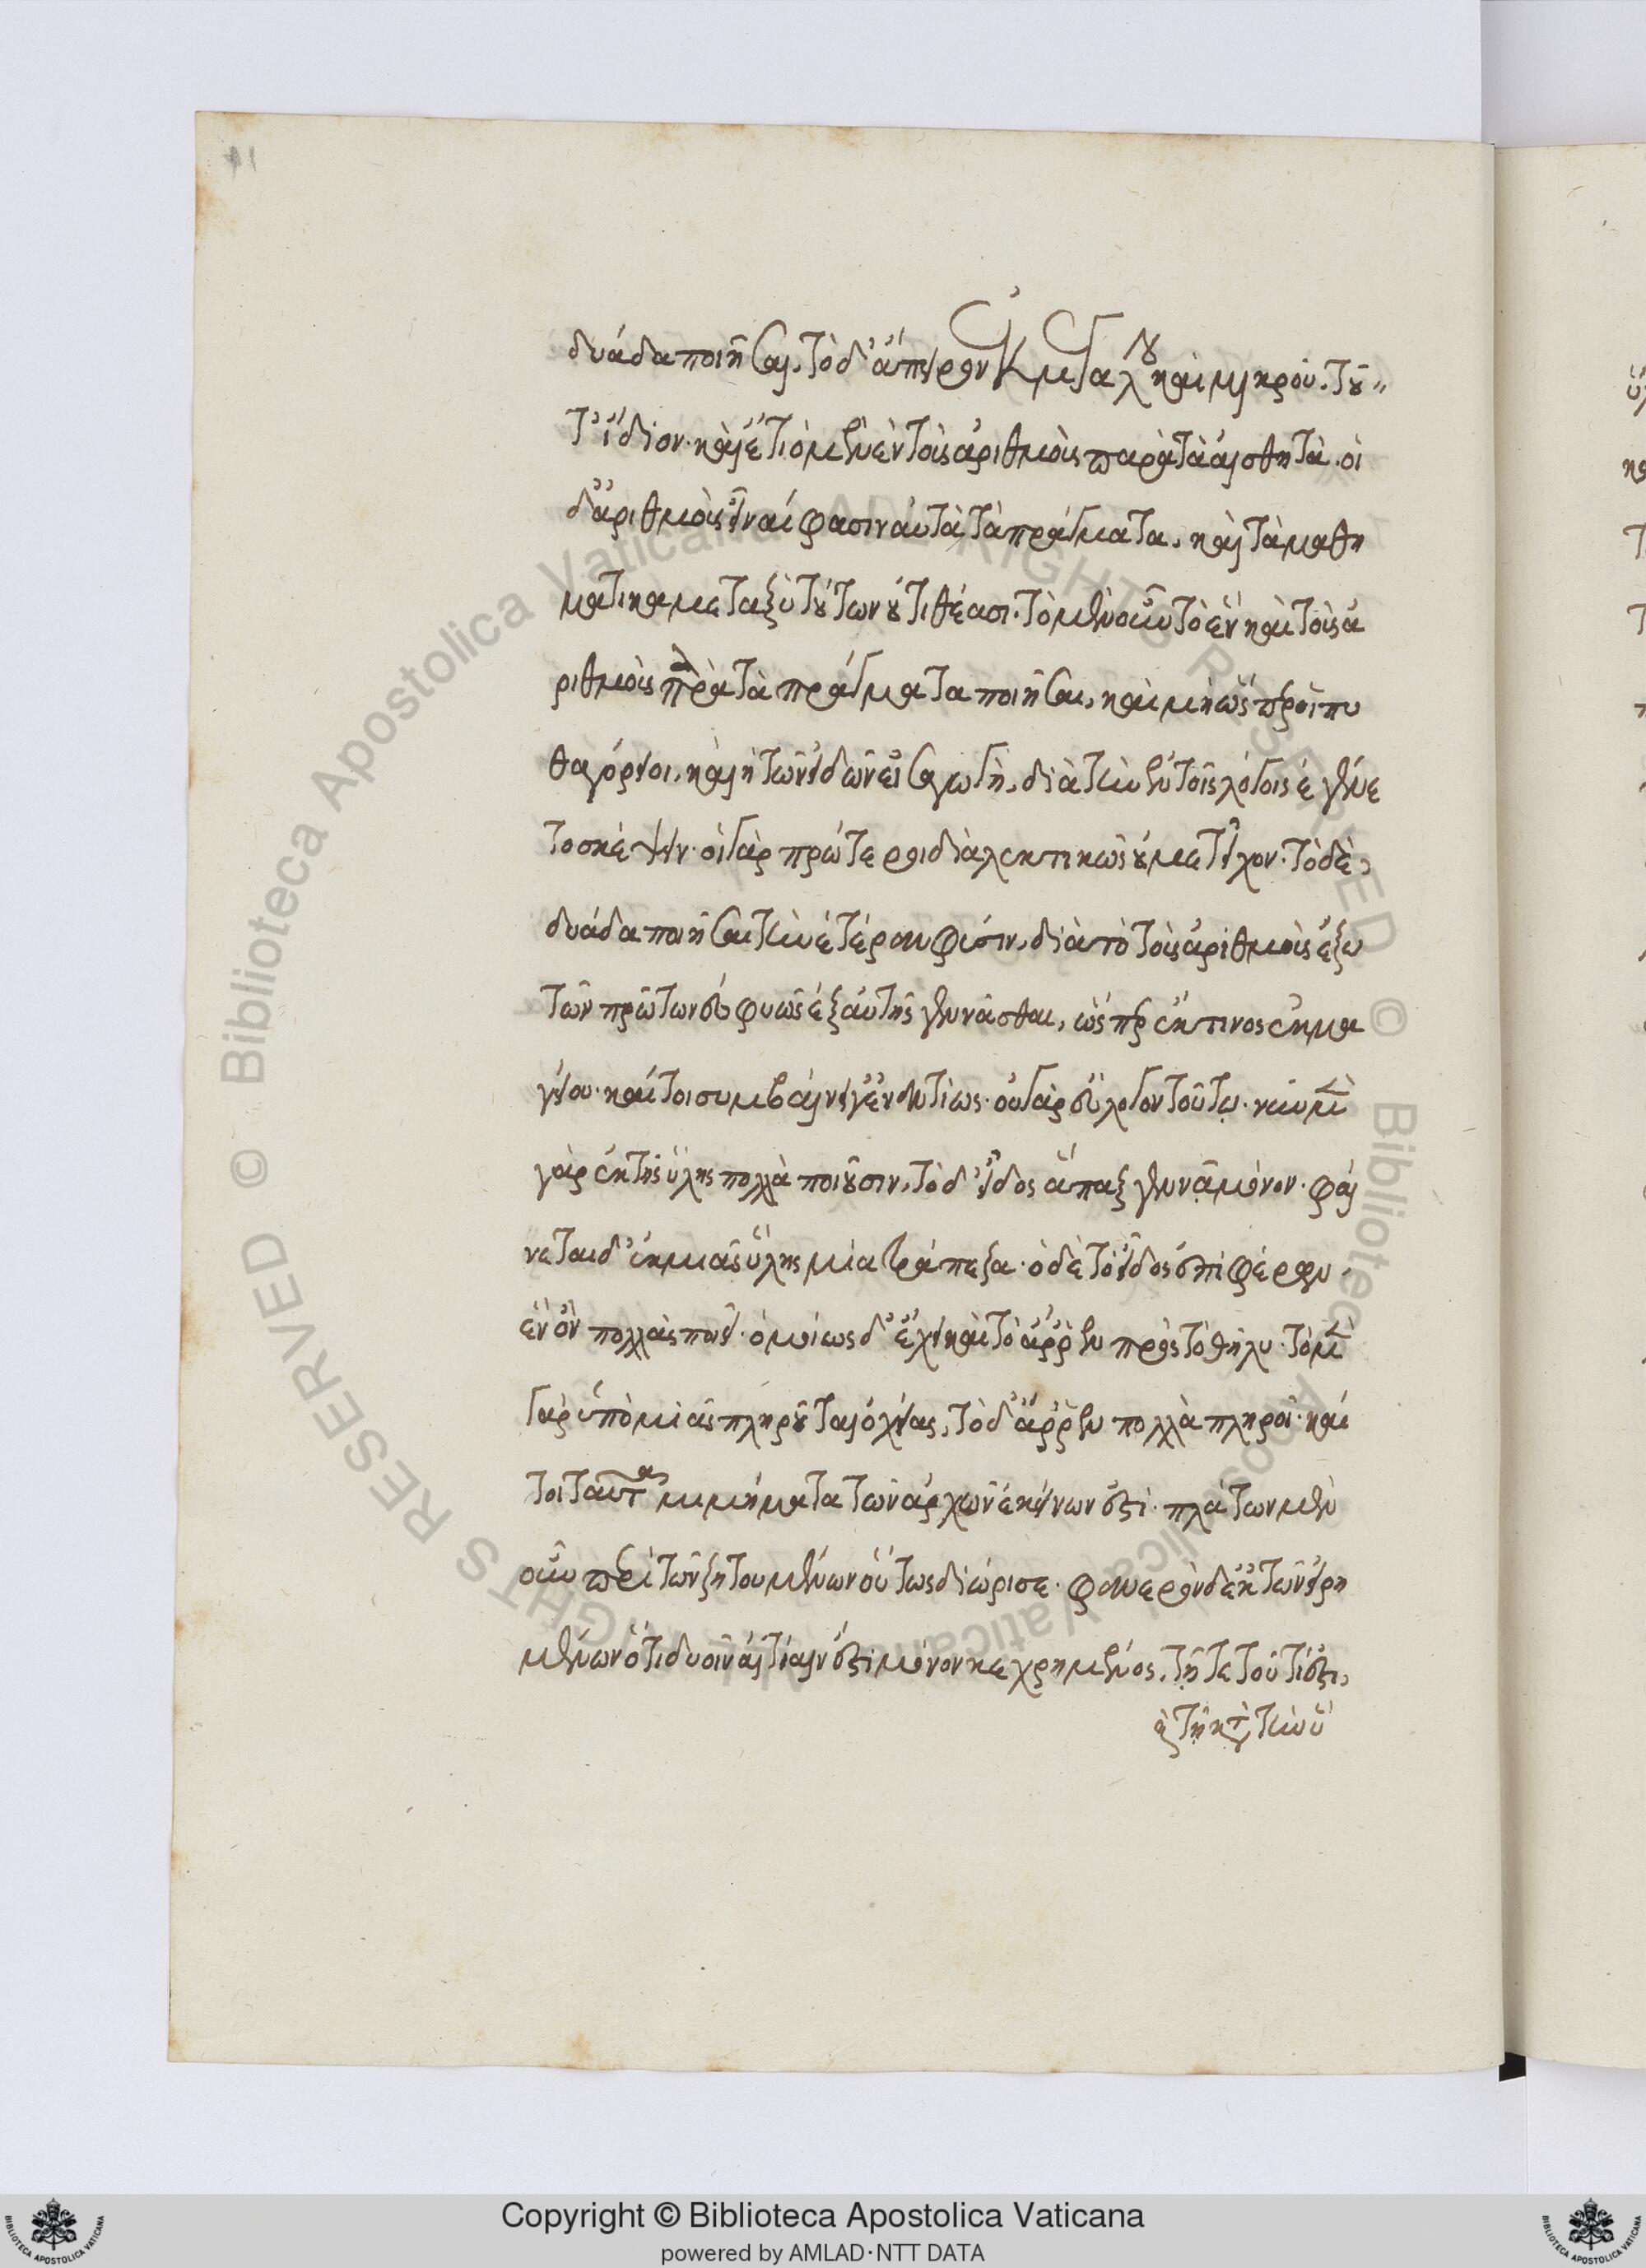 δυάδα ποιῆσαι, τὸ δ' ἄπειρον ἐκ μεγάλου καὶ μικροῦ. τοῦ"
τ' ἴδιον. καὶ ἔτι ὁ μὲν ἐν τοῖς ἀριθμοῖς παρὰ τὰ αἰσθητὰ. οἱ
δ' ἀριθμοὺς εἶναί φασιν αὐτὰ τὰ πράγματα, καὶ τὰ μαθη
ματικὰ μεταξὺ τούτων οὐ τιθέασι. τὸ μὲν οὖν τὸ ἓν καὶ τοὺς ἀ
ριθμοὺς παρὰ τὰ πράγματα ποιῆσαι, καὶ μὴ ὥσπερ οἱ πυ
θαγόρειοι, καὶ ἡ τῶν εἰδῶν εἰσαγωγὴ, διὰ τὴν ἐν τοῖς λόγοις ἐγένε
το σκέψιν. οἱ γὰρ πρώτεροι διαλεκτικῶς οὐ μετεῖχον. τὸ δὲ,
δυάδα ποιῆσαι τὴν ἑτέραν φύσιν, διὰ τὸ τοὺς ἀριθμοὺς ἔξω
τῶν πρώτων εὐφυῶς ἐξ αὐτῆς γεννᾶσθαι, ὥσπερ ἔκ τινος ἐκμα
γείου. καίτοι συμβαίνει γ' ἐναντίως. οὐ γὰρ εὔλογον τούτω. νῦν μὲν
γὰρ ἐκ τῆς ὕλης πολλὰ ποιοῦσιν, τὸ δ' εἶδος ἅπαξ γεννᾷ μόνον. φαί
νεται δ' ἐκ μιᾶς ὕλης μία τράπεζα. ὁ δὲ τὸ εἶδος ἐπιφέρων,
εἷς ὢν πολλὰς ποιεῖ. ὁμοίως δ' ἔχει καὶ τὸ ἄρρεν πρὸς τὸ θῆλυ. τὸ μὲν
γὰρ ὑπὸ μιᾶς πληροῦται ὀχείας, τὸ δ' ἄρρεν πολλὰ πληροῖ. καί
τοι ταῦτα μιμήματα τῶν ἀρχῶν ἐκείνων ἐστί. πλάτων μὲν
οὖν περὶ τῶν ζητουμένων οὕτως διώρισε. φανερὸν δ' ἐκ τῶν εἰρη
μένων ὅτι δυοῖν αἰτίαιν ἐστὶ μόνον κεχρημένος, τῇ τε τοῦ τί ἐστι,
καὶ τῇ κατὰ τὴν ὕ